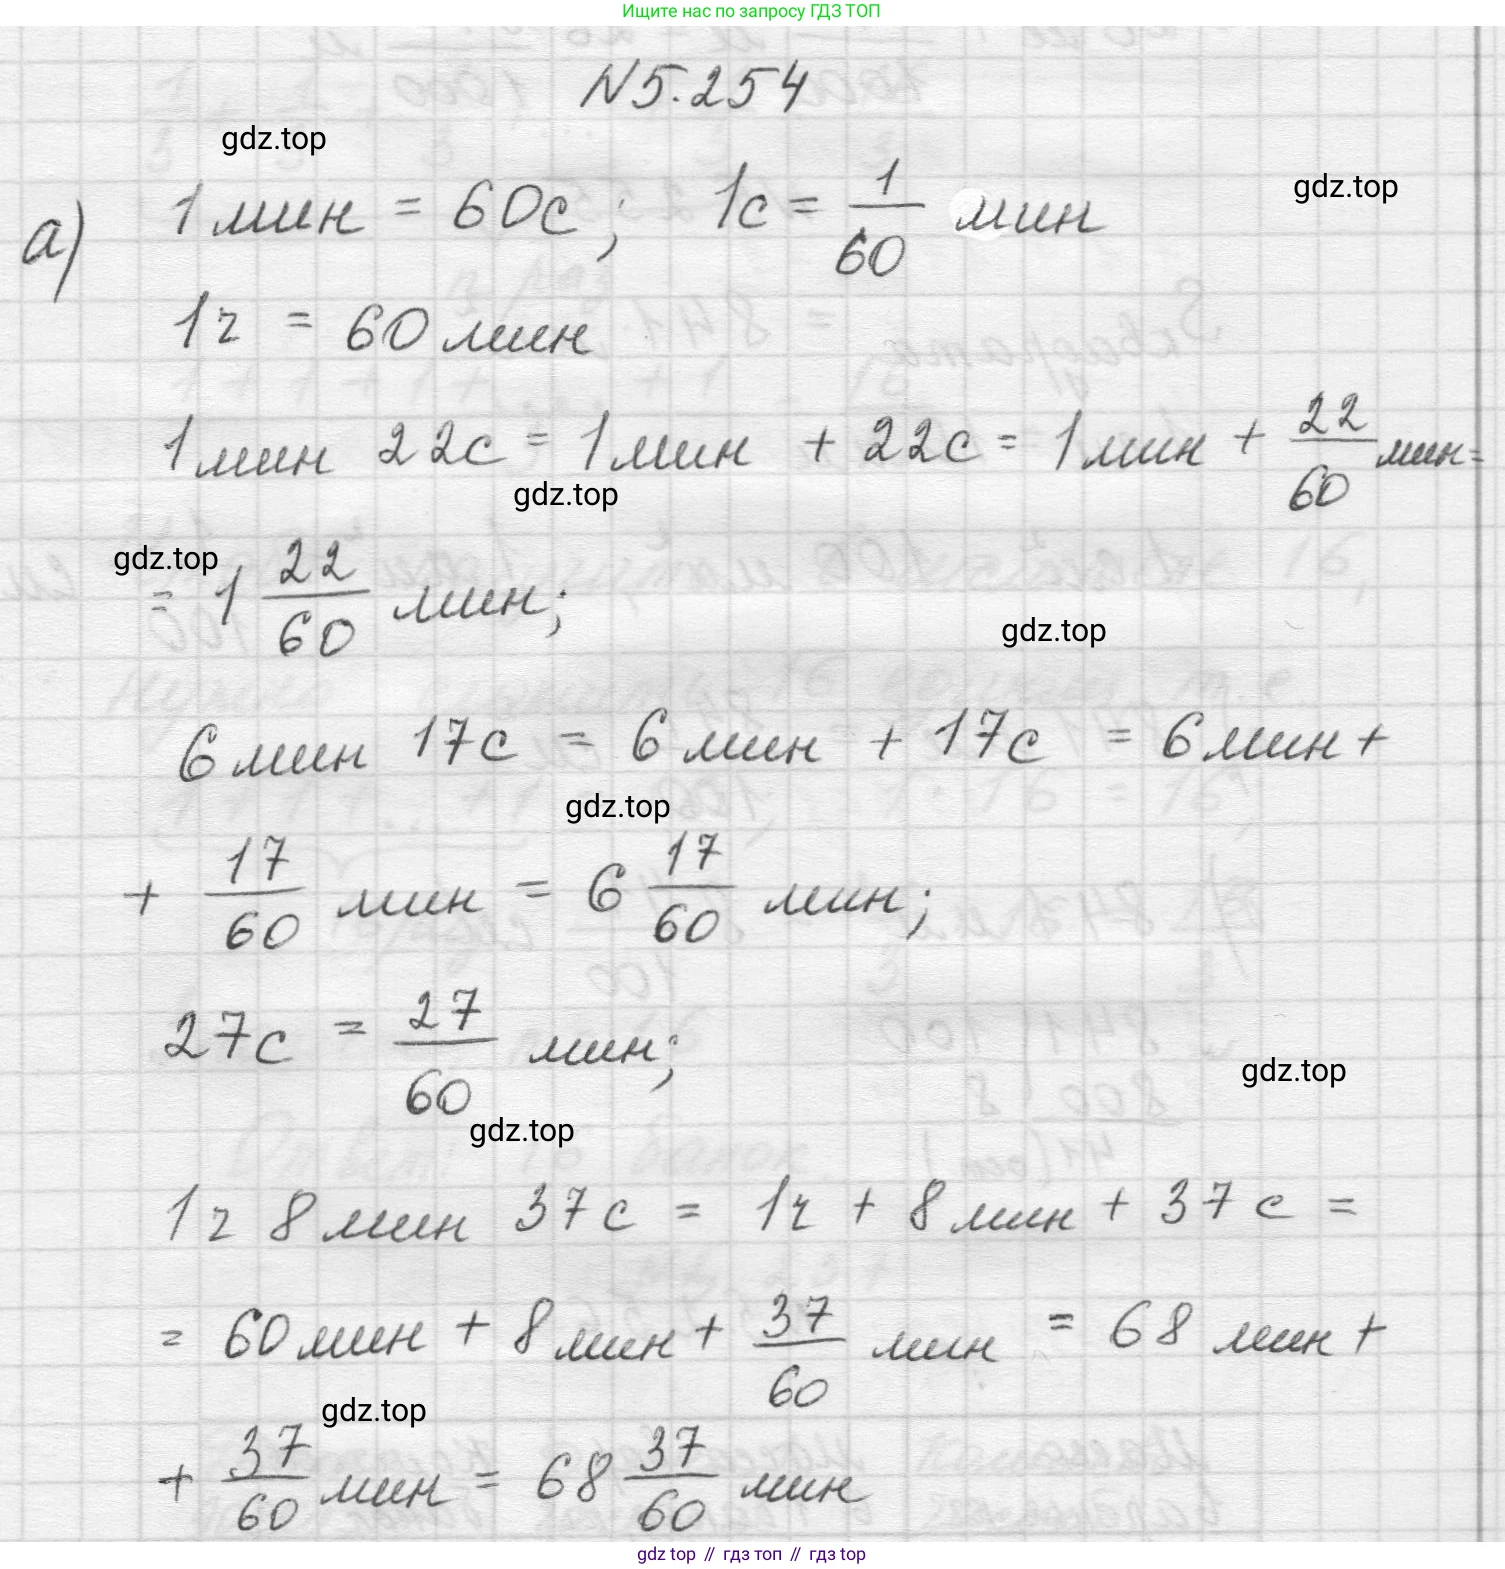 Ищите нас по запросу ГДЗ ТОП
N5.254
gdz.top
gdz.top
а) 1мин = 60с; 1с = 1/60 мин
1ч = 60мин
1мин 22с = 1мин + 22с = 1мин + 22/60 мин =
gdz.top
gdz.top
= 1 22/60 мин;
gdz.top
6мин 17с = 6мин + 17с = 6мин +
gdz.top
+ 17/60 мин = 6 17/60 мин;
27с = 27/60 мин;
gdz.top
gdz.top
1ч 8мин 37с = 1ч + 8мин + 37с =
= 60мин + 8мин + 37/60 мин = 68 мин +
gdz.top
+ 37/60 мин = 68 37/60 мин
gdz top // гдз топ // гдз top